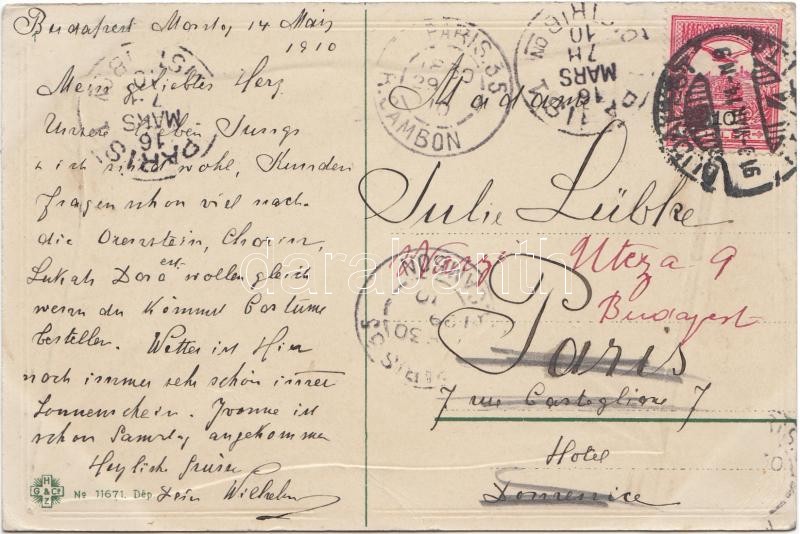 Budapest Montag 14 März
1910
Mein geliebtes Herz
Unsere lieben Jungs
u ich sind wohl, Kunden
fragen schon viel nach
die Orenstein, Chorin,
Lukats Dora etc wollen gleich
wenn du kommst Costüme
bestellen. Wetter ist Hier
noch immer sehr schön immer
Sonnenschein. Yvonne ist
schon Samstag angekommen
Herzliche Grüsse
Dein Wilhelm
H G & Co Z
No 11671. Dép
Madame
Julie Lübke
Utcza 9
Budapest
Paris
7 rue Castiglione 7
Hotel
PARIS. 35
R. CAMBON
PARIS
16
MARS
7H
10
DISTRIBON
BUDAPEST
10
darabanth